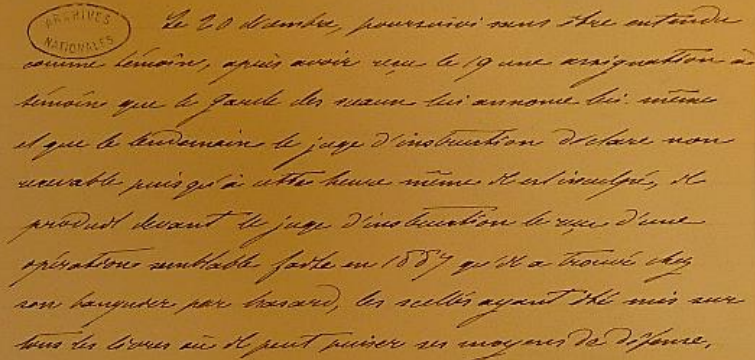 ARCHIVES NATIONALES
Le 20 Décembre, poursuivi sans être entendu
comme témoin, après avoir reçu le 19 une assignation à
témoin que le Garde des sceaux lui annonce lui-même
et que le lendemain le juge d'instruction déclare non
recevable puisqu'à cette heure même il est inculpé, il
produit devant le juge d'instruction le reçu d'une
opération semblable faite en 1887 qu'il a trouvé chez
son banquier par hasard, les scellés ayant été mis sur
tous les livres où il peut puiser ses moyens de défense,